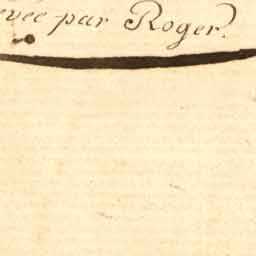 evée par Roger.